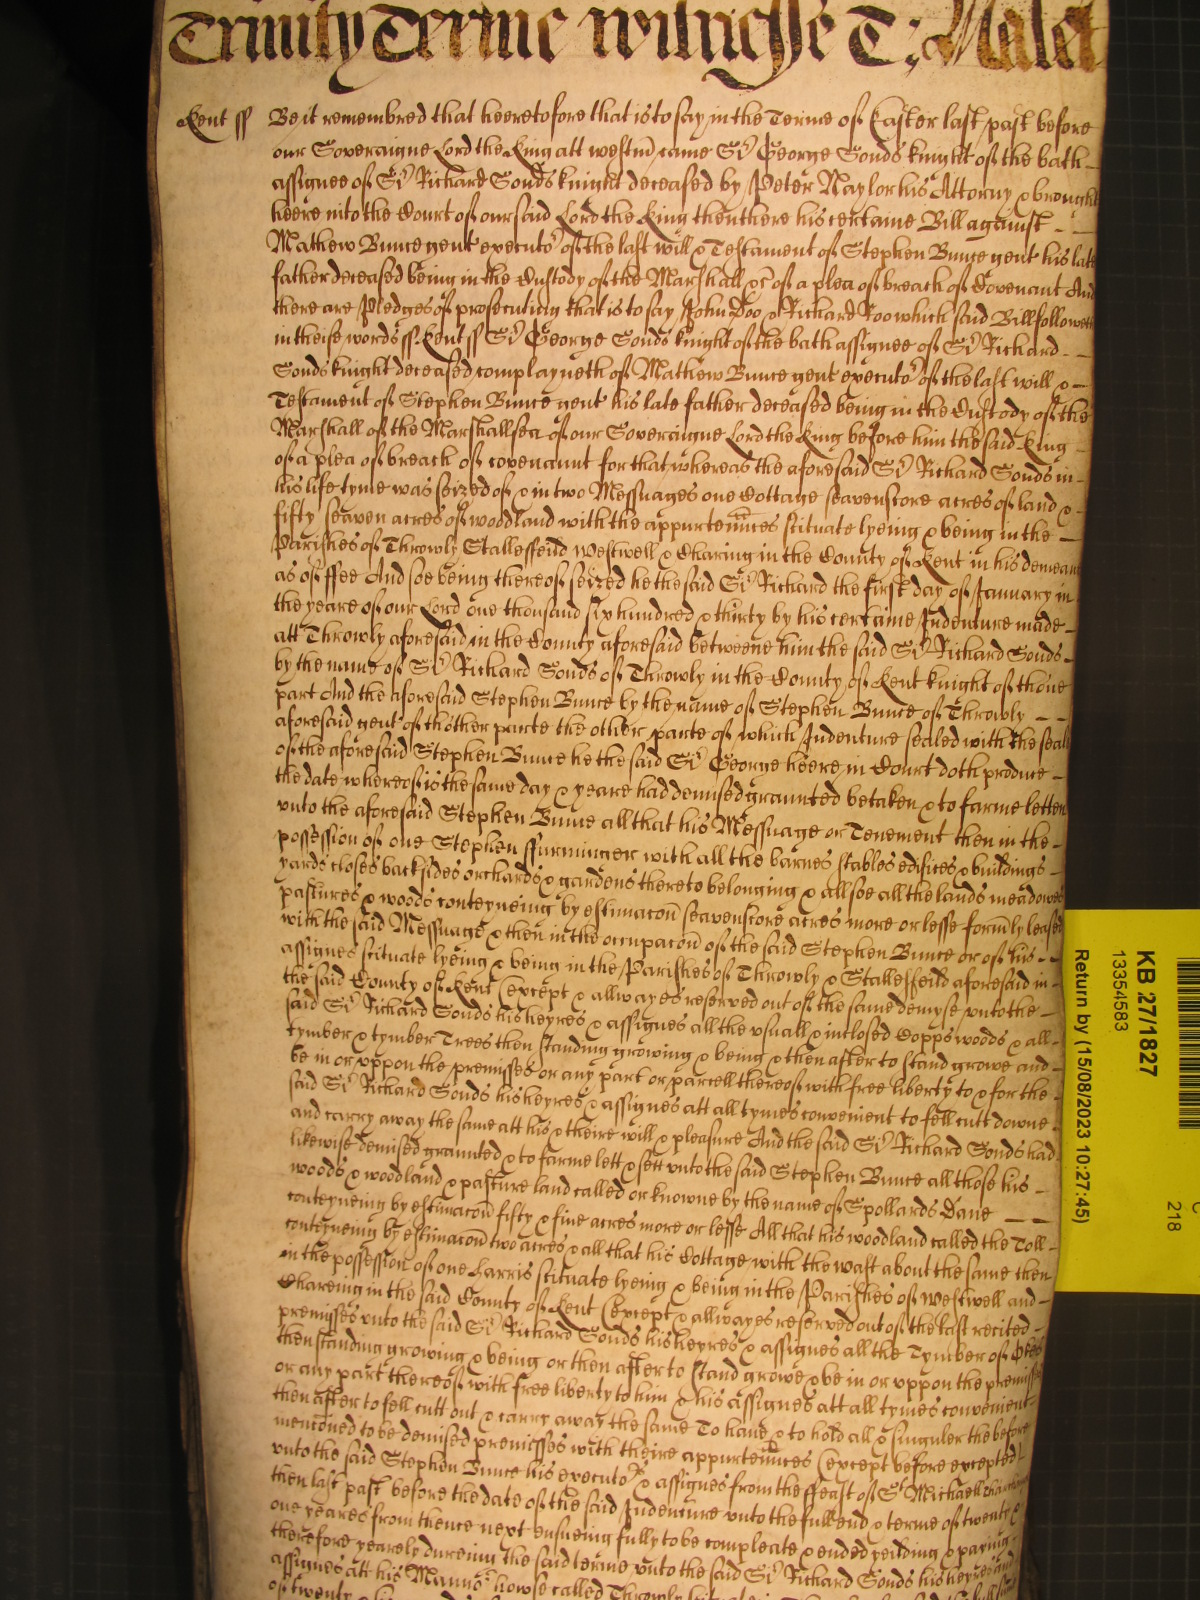 Trinity Terme witnesse T: Malet
Kent ss Be it remembred that heeretofore that is to say in the Terme of Easter last past before
our Soveraigne Lord the King att westm came Sr George Sonds knight of the bath
assignee of Sr Richard Sonds knight deceased by Peter Naylor his Attorny & brought
heere into the Court of our said Lord the King then there his certaine Bill against
Mathew Bunce gent executor of the last will & Testament of Stephen Bunce gent his late
father deceased being in the Custody of the Marshall &c of a plea of breach of Covenant And
there are Pledges of prosecuting that is to say John Doo & Richard Roo which said Bill followeth
in theise words ss Kent ss Sr George Sonds knight of the bath assignee of Sr Richard
Sonds knight deceased complayneth of Mathew Bunce gent executor of the last will &
Testament of Stephen Bunce gent his late father deceased being in the Custody of the
Marshall of the Marshallsea of our Soveraigne Lord the King before him the said King
of a plea of breach of covenannt for that whereas the aforesaid Sr Richard Sonds in
his life tyme was seized of & in two Messuages one Cottage seavenscore acres of land &
fifty seaven acres of woodland with the appurtennces scituate lyeing & being in the
Parishes of Throwly Stallesfeild Westwell & Charing in the County of Kent in his demeane
as of ffee And soe being thereof seized he the said Sr Richard the first day of January in
the yeare of our Lord one thousand six hundred & thirty by his certaine Indenture made
att Throwly aforesaid in the County aforesaid betweene him the said Sr Richard Sonds
by the name of Sr Richard Sonds of Throwly in the County of Kent knight of thone
part And the aforesaid Stephen Bunce by the name of Stephen Bunce of Throwly
aforesaid gent of thother parte the other parte of which Indenture sealed with the seale
of the aforesaid Stephen Bunce he the said Sr George heere in Court doth produce
the date whereof is the same day & yeare had demised graunted betaken & to farme letten
unto the aforesaid Stephen Bunce all that his Messuage or Tenement then in the
possession of one Stephen ffurminger with all the barnes stables edifices & buildings
yards closes backsides orchards & gardens thereto belonging & allsoe all the lands meadowes
pastures & woods conteyneing by estimacon seavenscore acres more or lesse formly leased
with the said Messuage & then in the occupacon of the said Stephen Bunce or of his
assignes scituate lyeing & being in the Parishes of Throwly & Stallesfeild aforesaid in
the said County of Kent (except & allwayes reserved out of the same demyse unto the
said Sr Richard Sonds his heyres & assignes all the usuall & inclosed Copps woods & all
tymber & tymber Trees then standing growing & being & then after to stand growe and
be in or uppon the premisses or any part or parcell thereof with free liberty to & for the
said Sr Richard Sonds his heyres & assignes att all tymes convenient to fell cutt downe
and carry away the same att his & theire will & pleasure And the said Sr Richard Sonds had
likewise demised graunted & to farme lett & sett unto the said Stephen Bunce all those his
woods & woodland & pasture land called or knowne by the name of Spollards Dane
conteyneing by estimacon fifty & fiue acres more or lesse All that his woodland called the Toll
conteyneing by estimacon two acres & all that his Cottage with the wast about the same then
in the possession of one Harris scituate lyeing & being in the Parishes of Westwell and
Chareing in the said County of Kent (except & allwayes reserved out of the last recited
premisses unto the said Sr Richard Sonds his heyres & assignes all the Tymber of Okes
then standing growing & being or then after to stand growe & be in or uppon the premisses
or any part thereof with free liberty to him & his assignes att all tymes convenient
then after to fell cutt out & carry away the same To haue & to hold all & singuler the before
mencioned to be demised premisses with theire appurtennces (except before excepted)
unto the said Stephen Bunce his executors & assignes from the ffeast of St Michaell
then last past before the date of the said Indenture unto the full end & terme of twenty &
one yeares from thence next ensueing fully to be compleate & ended yeilding & paying
therefore yearely dureing the said terme unto the said Sr Richard Sonds his heyres and
assignes att his Mannor howse called Throwly
of twenty &
KB 27/1827
13354583
Return by (15/08/2023 10:27:45)
218